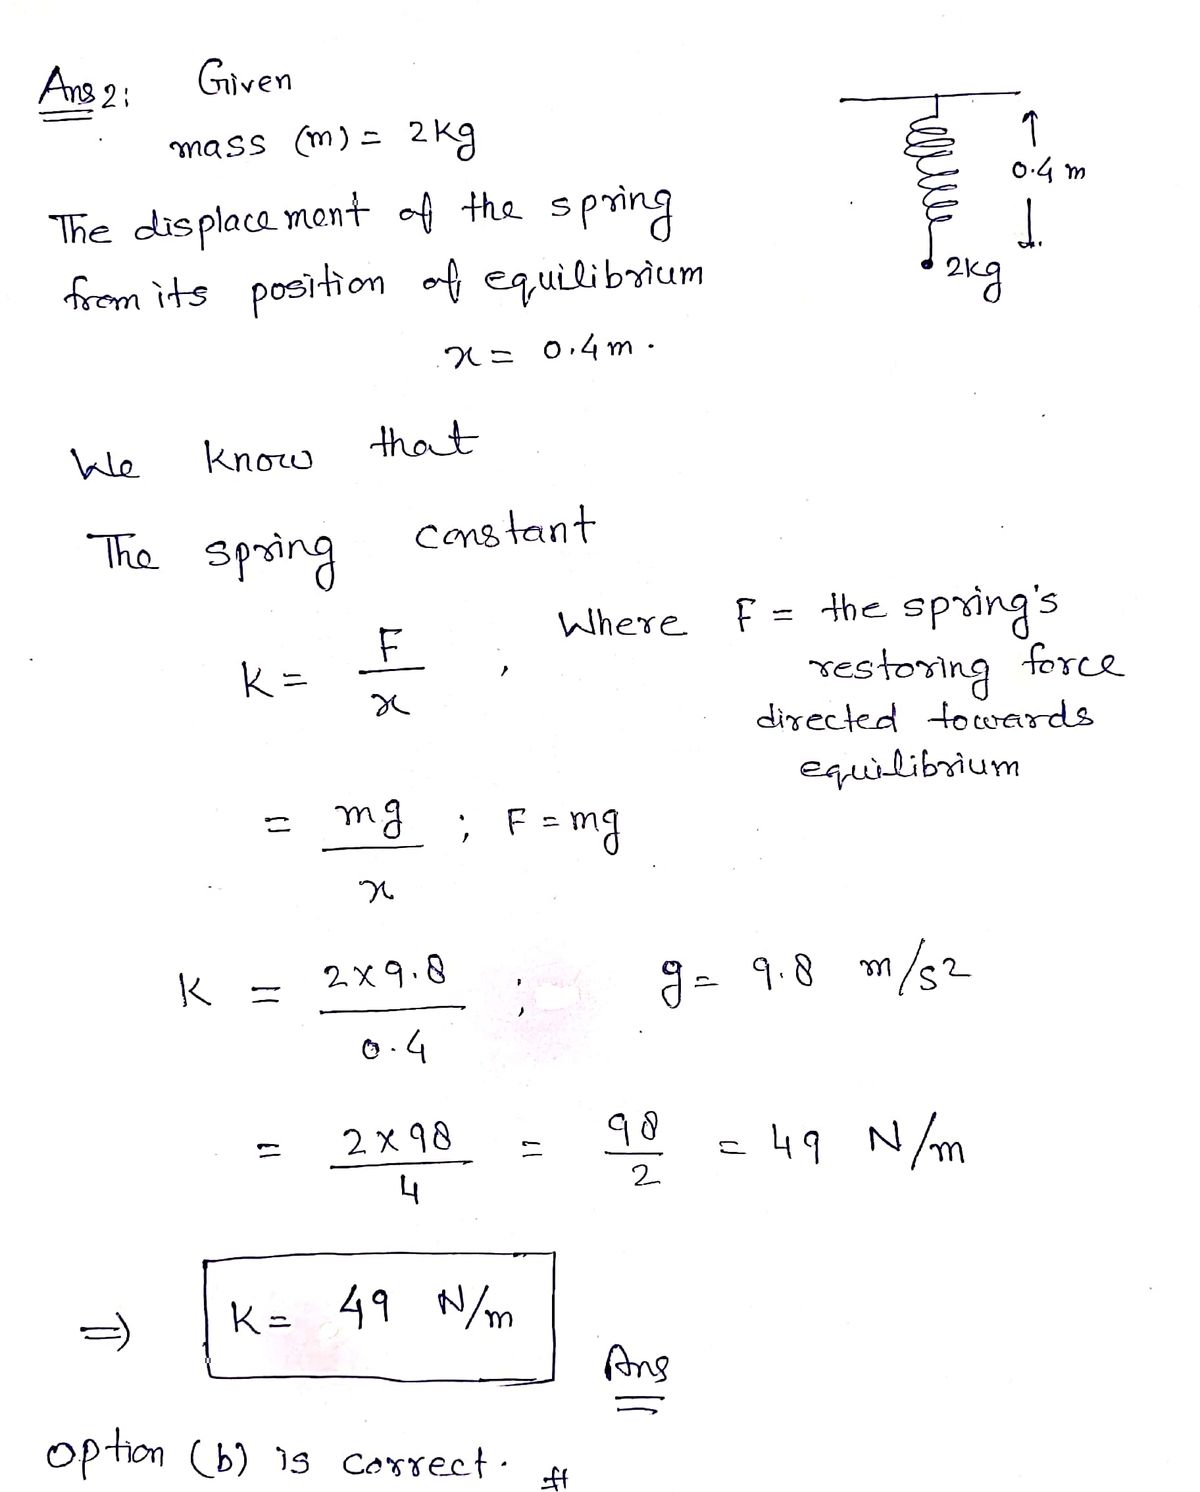 Ans 2: Given
mass (m) = 2kg
↑
0.4 m
↓
2kg
The displacement of the spring
from its position of equilibrium
x = 0.4 m.
We know that
The spring constant
K = F/x , Where F = the spring's
restoring force
directed towards
equilibrium
= mg/x ; F = mg
K = 2×9.8/0.4 ; g = 9.8 m/s2
= 2×98/4 = 98/2 = 49 N/m
⇒ K = 49 N/m
Ans
option (b) is correct. #